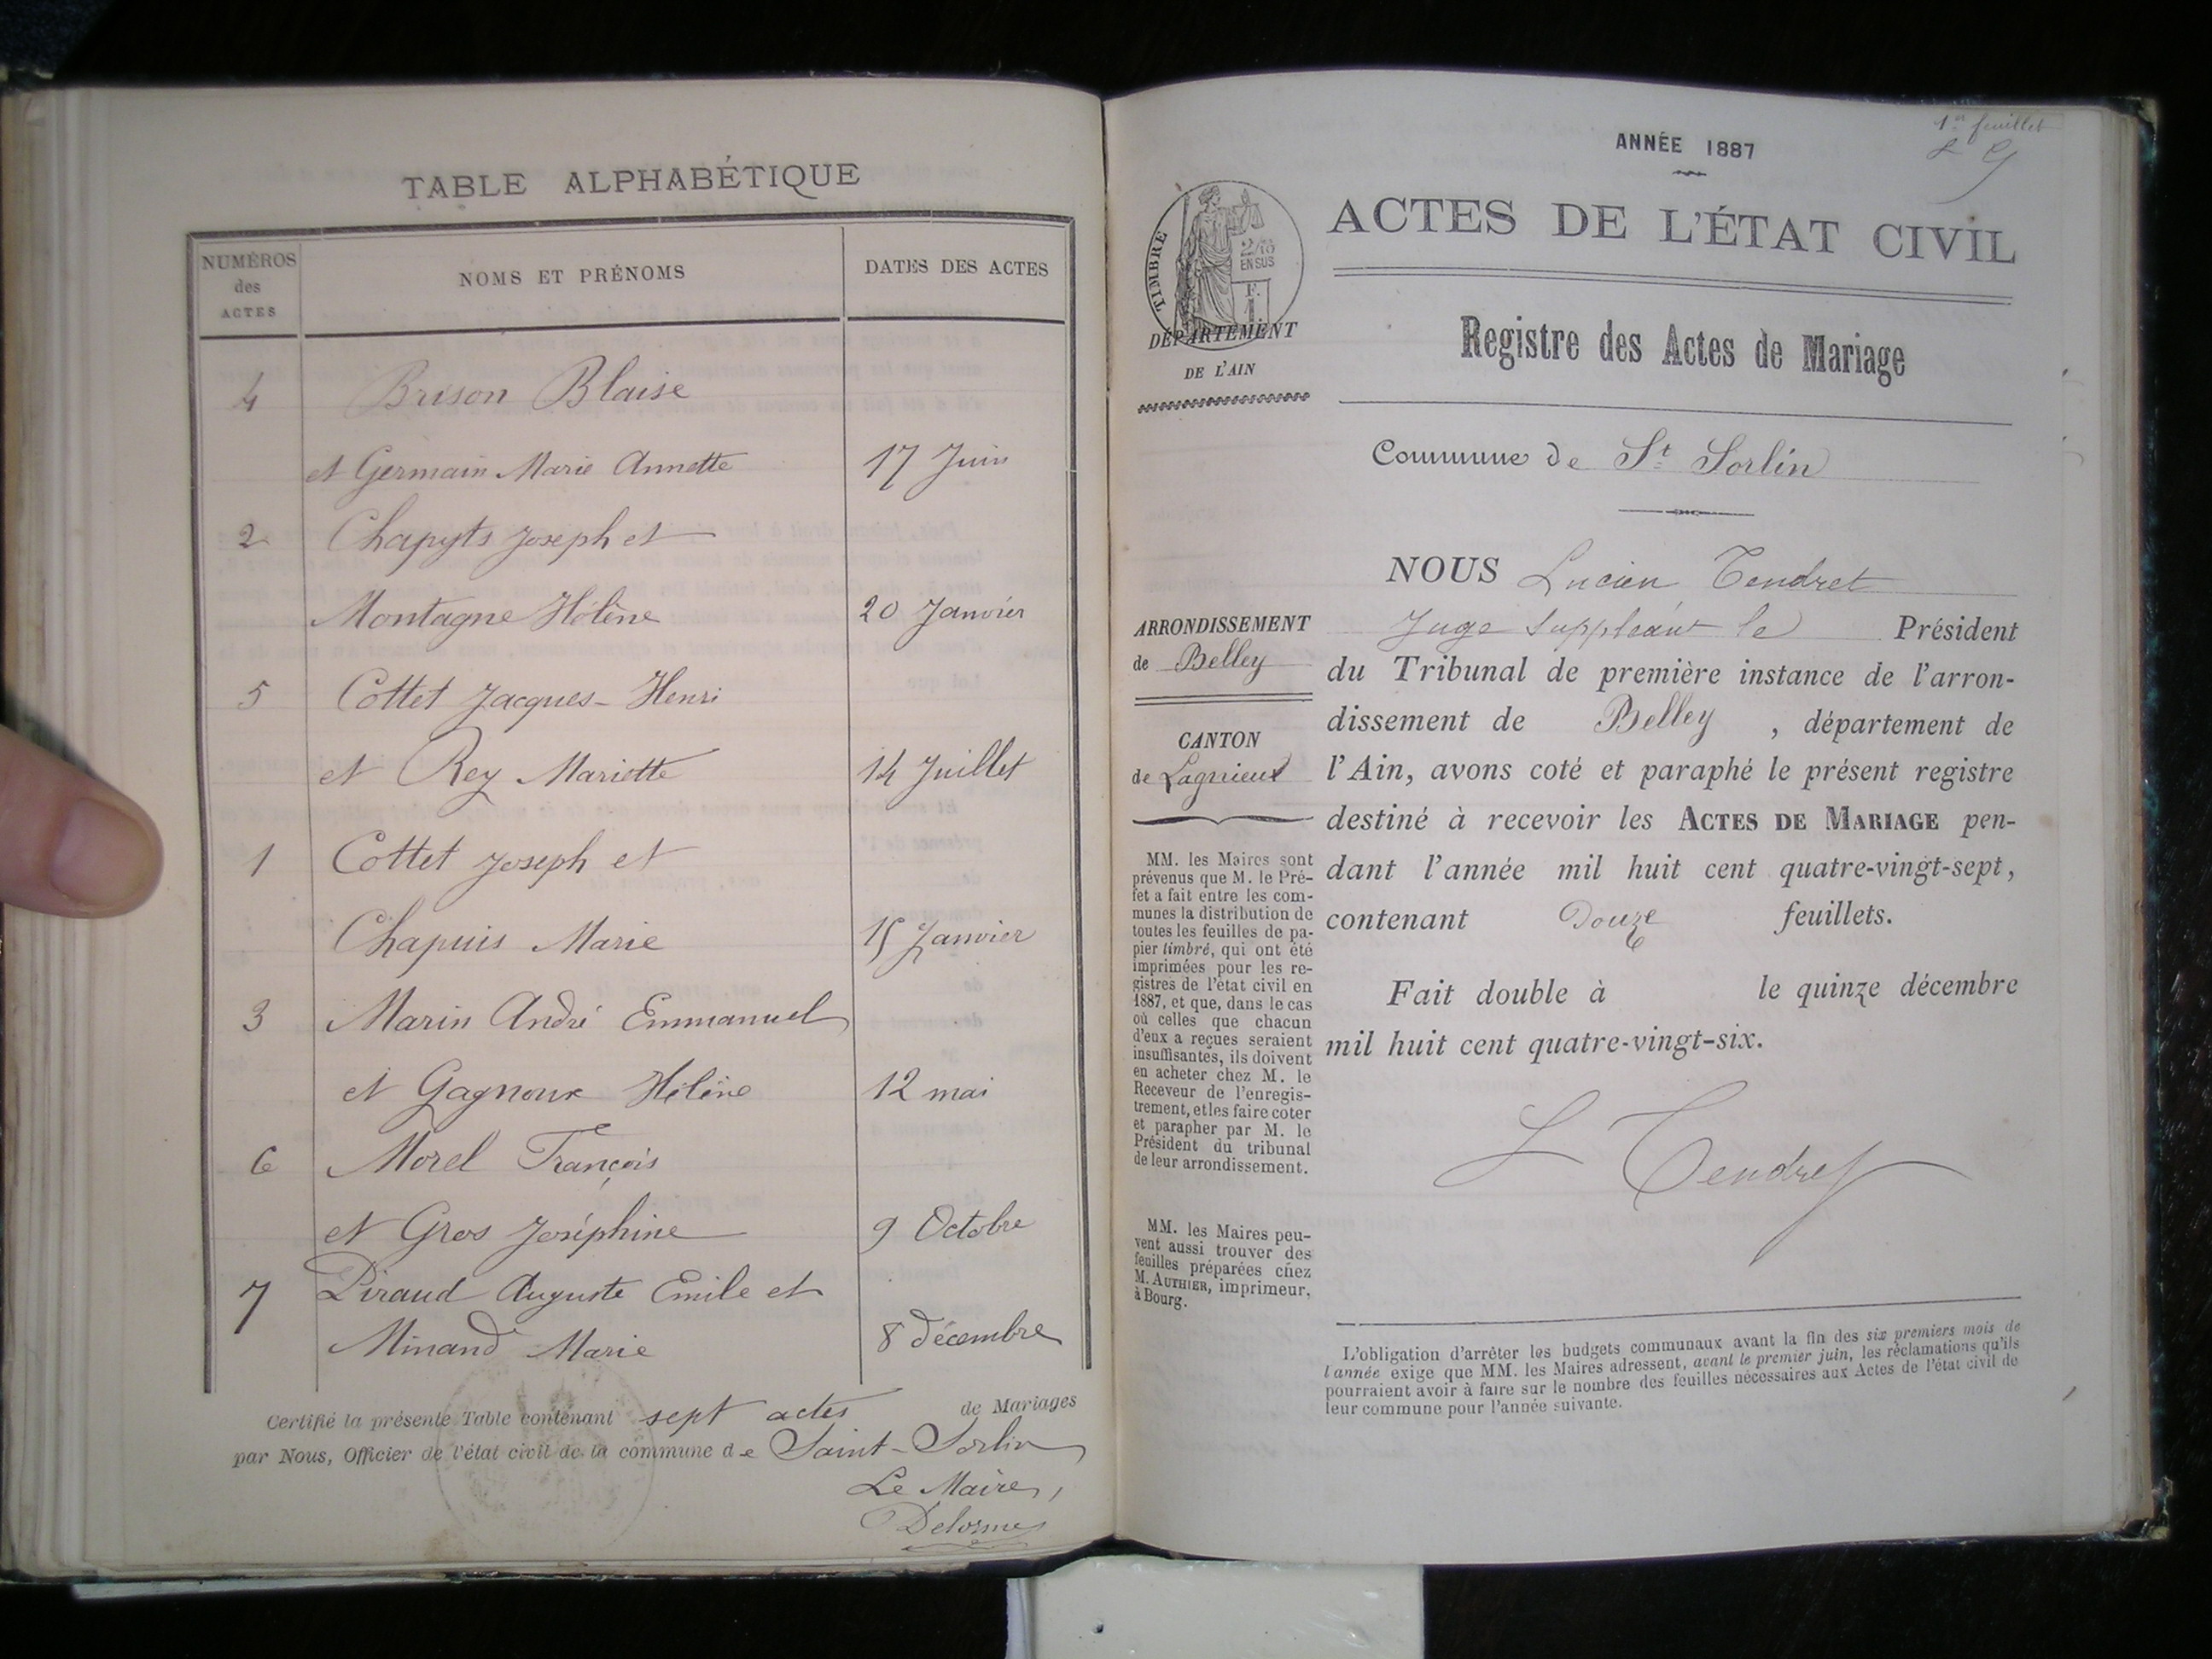 TABLE ALPHABÉTIQUE
NUMÉROS des ACTES
NOMS ET PRÉNOMS
DATES DES ACTES
4 Brison Blaise
et Germain Marie Annette 17 Juin
2 Chapyts Joseph et
Montagne Hélène 20 Janvier
5 Cottet Jacques-Henri
et Rey Mariette 14 Juillet
1 Cottet Joseph et
Chapuis Marie 15 Janvier
3 Marin André Emmanuel
et Gagnoux Hélène 12 mai
6 Morel François
et Gros Joséphine 9 Octobre
7 Piraud Auguste Emile et
Minand Marie 8 décembre
Certifié la présente Table contenant sept actes de Mariages
par Nous, Officier de l'état civil de la commune de Saint-Sorlin
Le Maire,
Delorme
1er feuillet
ANNÉE 1887
ACTES DE L'ÉTAT CIVIL
TIMBRE
2/10
EN SUS
F.
1
DÉPARTEMENT
DE L'AIN
Registre des Actes de Mariage
Commune de St Sorlin
NOUS Lucien Tendret
Juge Suppléant le Président
du Tribunal de première instance de l'arron-
dissement de Belley, département de
l'Ain, avons coté et paraphé le présent registre
destiné à recevoir les ACTES DE MARIAGE pen-
dant l'année mil huit cent quatre-vingt-sept,
contenant Douze feuillets.
Fait double à le quinze décembre
mil huit cent quatre-vingt-six.
L Tendret
ARRONDISSEMENT
de Belley
CANTON
de Lagnieux
MM. les Maires sont
prévenus que M. le Pré-
fet a fait entre les com-
munes la distribution de
toutes les feuilles de pa-
pier timbré, qui ont été
imprimées pour les re-
gistres de l'état civil en
1887, et que, dans le cas
où celles que chacun
d'eux a reçues seraient
insuffisantes, ils doivent
en acheter chez M. le
Receveur de l'enregis-
trement, et les faire coter
et parapher par M. le
Président du tribunal
de leur arrondissement.
MM. les Maires peu-
vent aussi trouver des
feuilles préparées chez
M. AUTHIER, imprimeur,
à Bourg.
L'obligation d'arrêter les budgets communaux avant la fin des six premiers mois de
l'année exige que MM. les Maires adressent, avant le premier juin, les réclamations qu'ils
pourraient avoir à faire sur le nombre des feuilles nécessaires aux Actes de l'état civil de
leur commune pour l'année suivante.